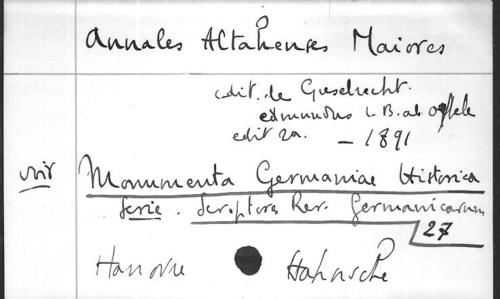 Annales Altahenses Maiores
edit. de Giesebrecht.
edmundus L. B. ab Oefele
edit 2a. – 1891
voir Monumenta Germaniae Historica
Serie. Scriptores Rer. Germanicarum
27
Hanovre Hahnsche